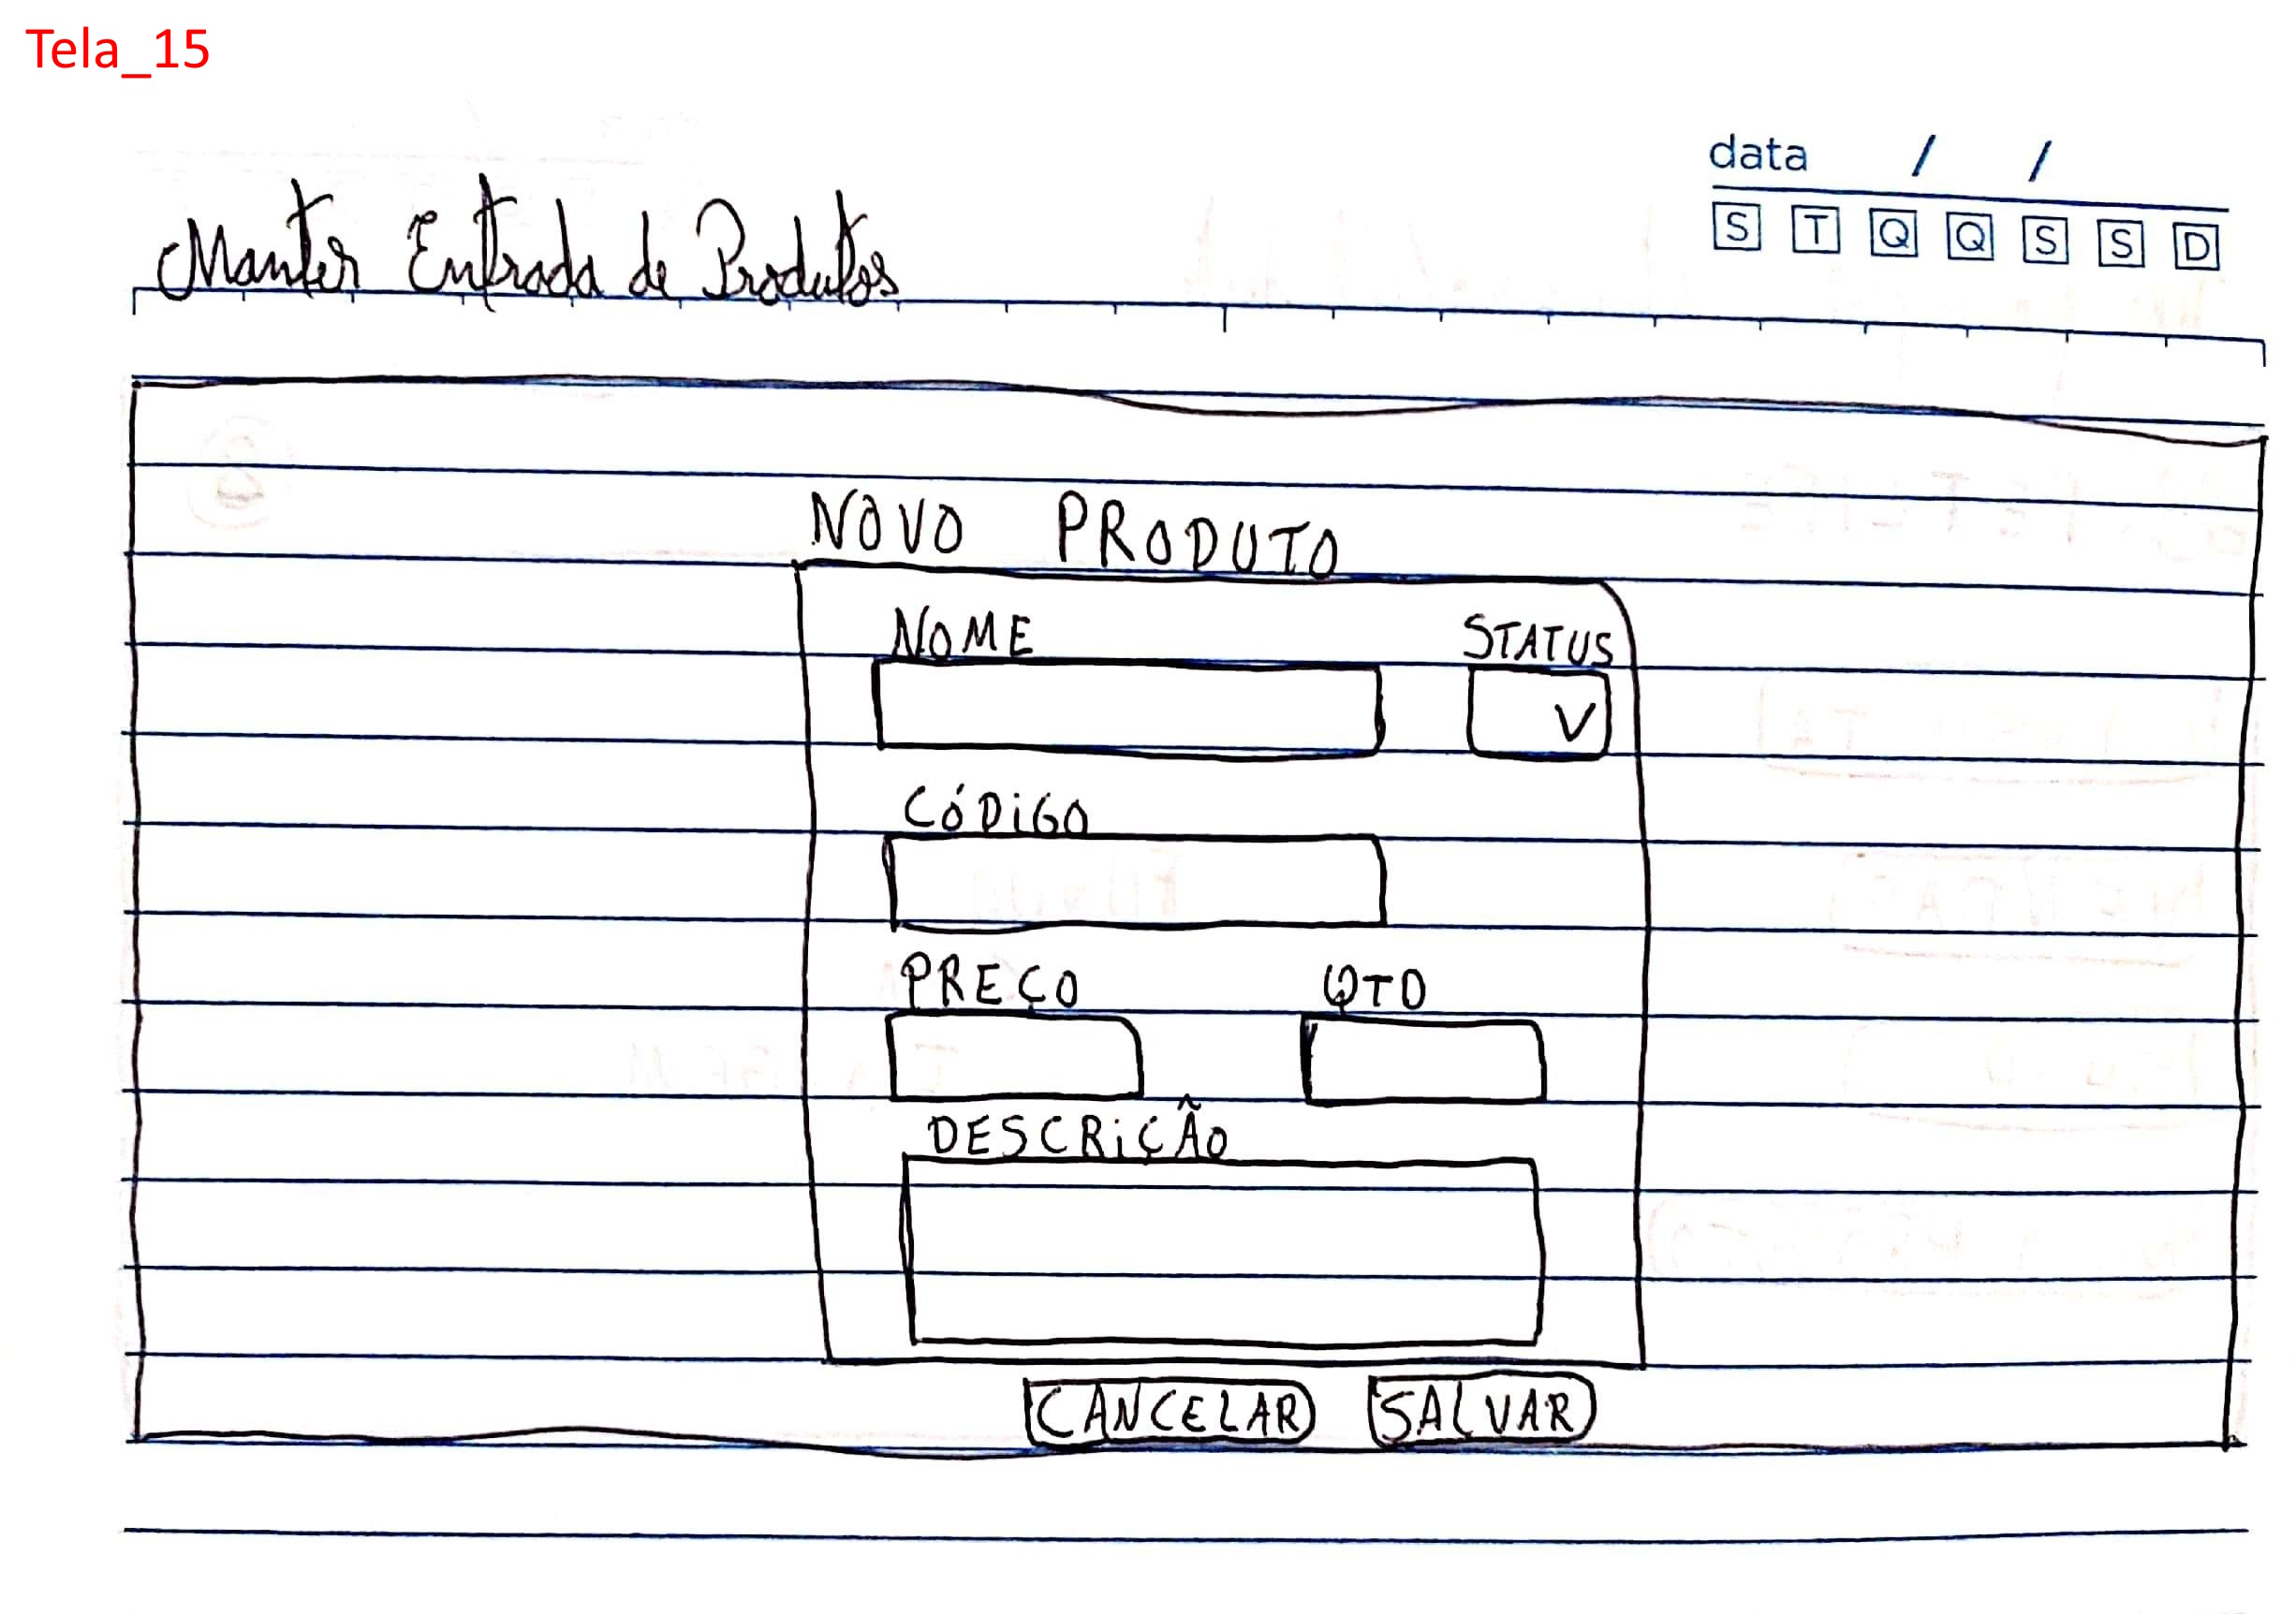 Tela_15
data / /
S T Q Q S S D
Manter Entrada de Produtos
NOVO PRODUTO
NOME STATUS
V
CÓDIGO
PREÇO QTD
DESCRIÇÃO
CANCELAR SALVAR